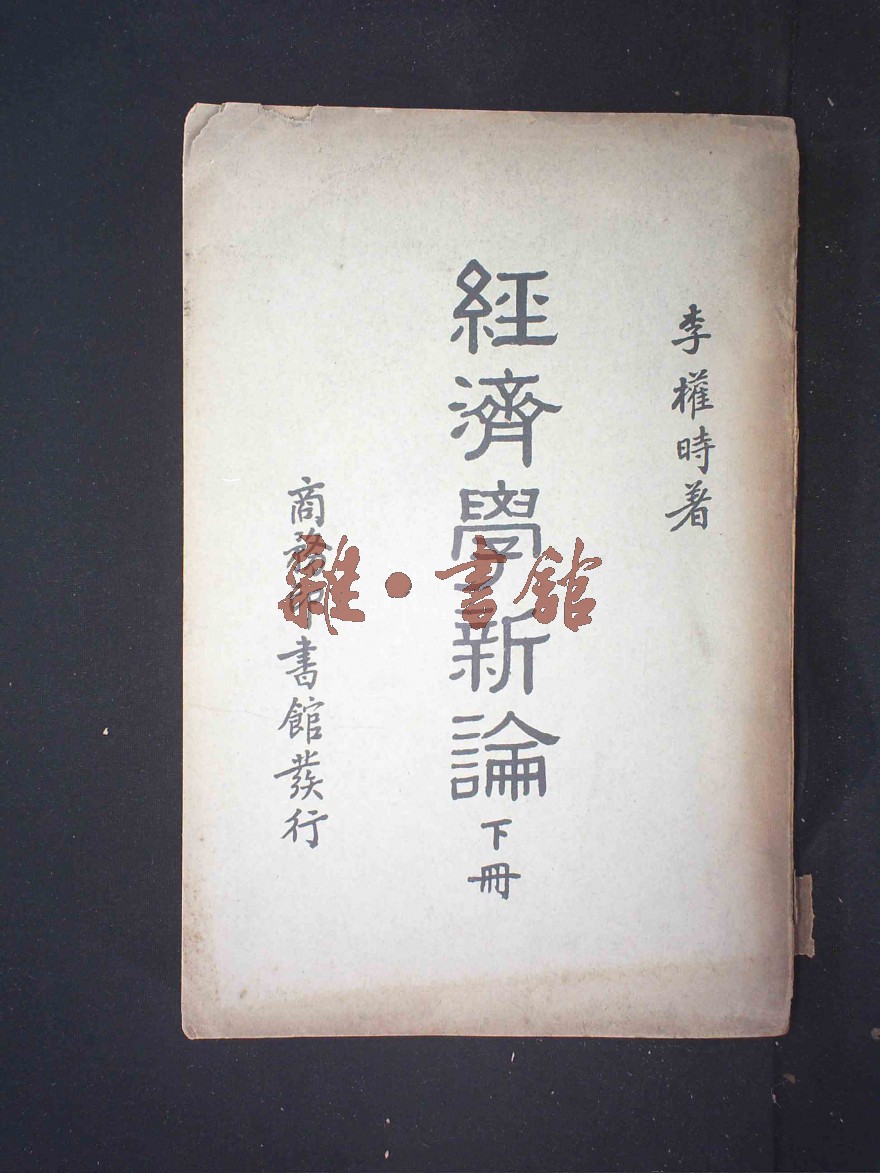 李權時著
經濟學新論
下冊
商務印書館發行
雜·書館